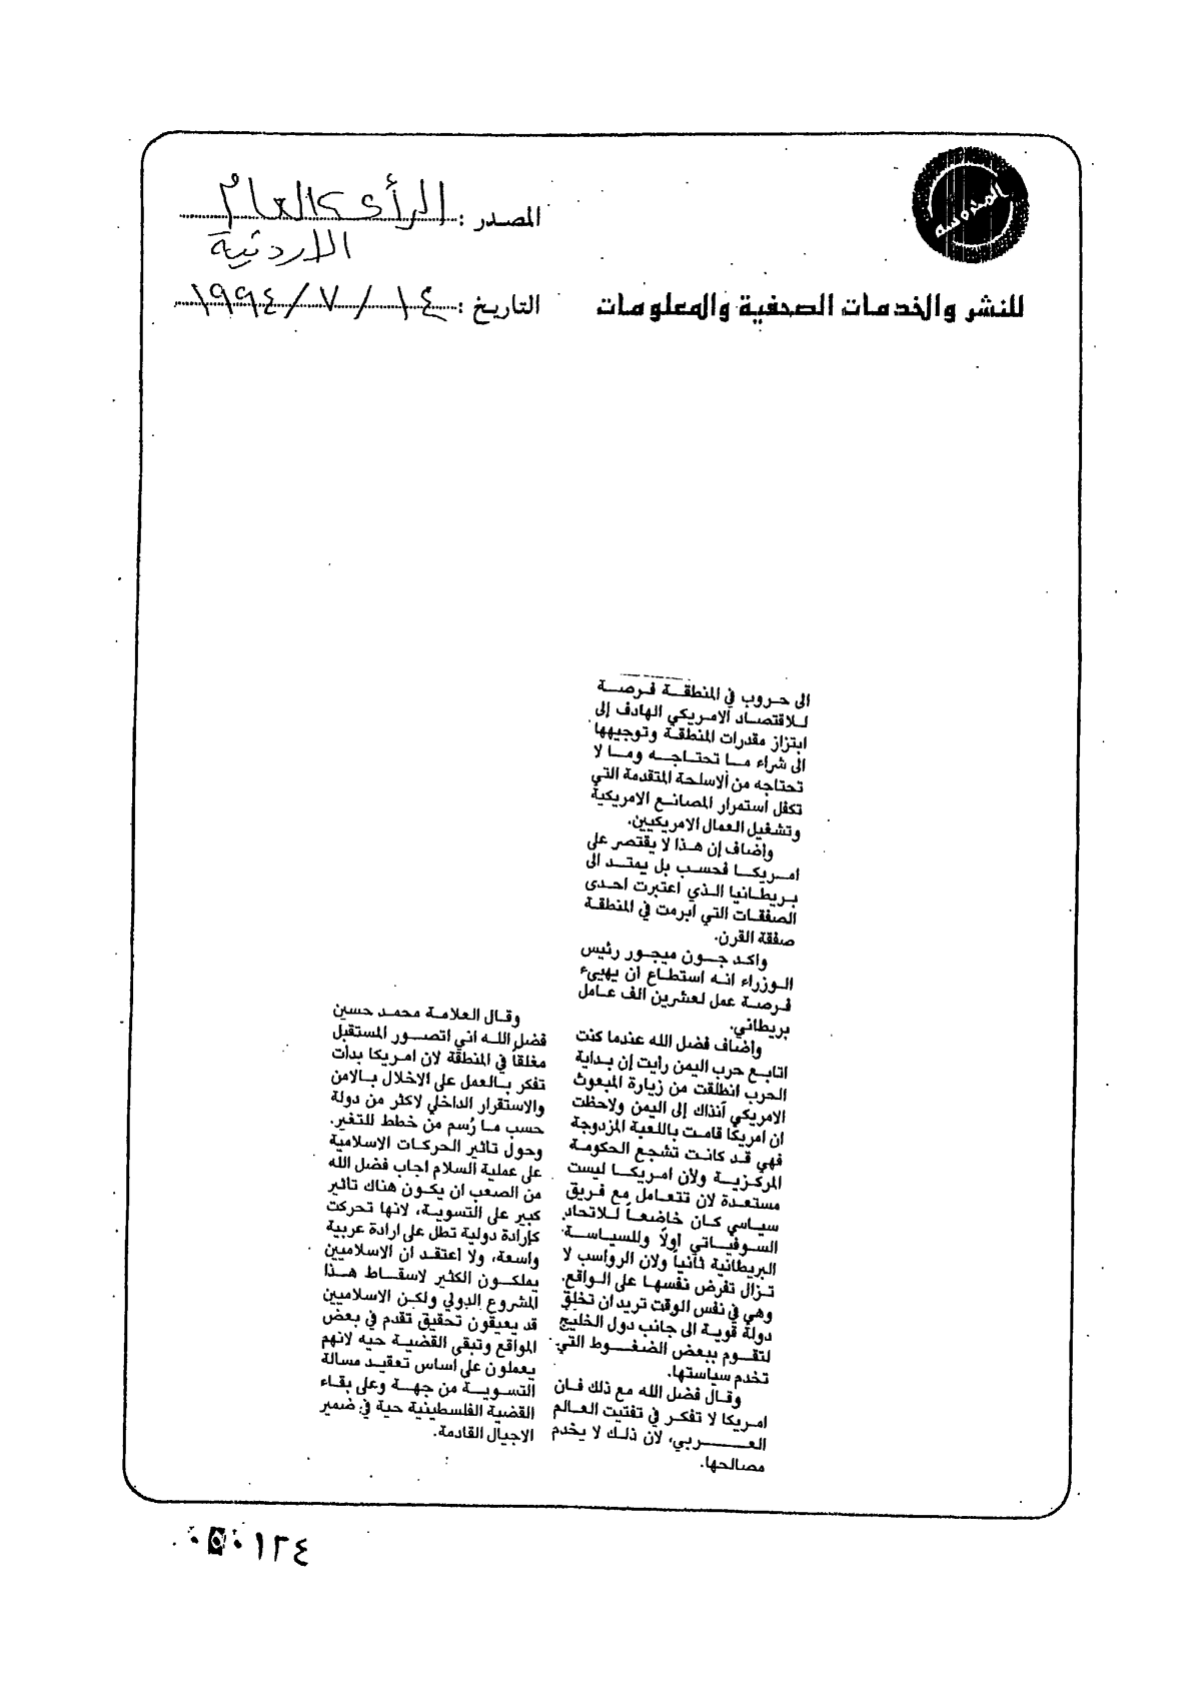 المحروسة
للنشر والخدمات الصحفية والمعلومات
المصدر : الرأى العام
الاردنية
التاريخ : ١٤ / ٧ / ١٩٩٤
الى حروب في المنطقة فرصة
للاقتصاد الامريكي الهادف إلى
ابتزاز مقدرات المنطقة وتوجيهها
الى شراء ما تحتاجه وما لا
تحتاجه من الاسلحة المتقدمة التي
تكفل استمرار المصانع الامريكية
وتشغيل العمال الامريكيين.
واضاف إن هذا لا يقتصر على
امريكا فحسب بل يمتد الى
بريطانيا الذي اعتبرت احدى
الصفقات التي ابرمت في المنطقة
صفقة القرن.
واكد جون ميجور رئيس
الوزراء انه استطاع ان يهيىء
فرصة عمل لعشرين الف عامل
بريطاني.
واضاف فضل الله عندما كنت
اتابع حرب اليمن رأيت إن بداية
الحرب انطلقت من زيارة المبعوث
الامريكي آنذاك إلى اليمن ولاحظت
ان امريكا قامت باللعبة المزدوجة
فهي قد كانت تشجع الحكومة
المركزية ولأن امريكا ليست
مستعدة لان تتعامل مع فريق
سياسي كان خاضعاً للاتحاد
السوفياتي أولاً وللسياسة
البريطانية ثانياً ولان الرواسب لا
تزال تفرض نفسها على الواقع.
وهي في نفس الوقت تريد ان تخلق
دولة قوية الى جانب دول الخليج
لتقوم ببعض الضغوط التي
تخدم سياستها.
وقال فضل الله مع ذلك فان
امريكا لا تفكر في تفتيت العالم
العربي، لان ذلك لا يخدم
مصالحها.
وقال العلامة محمد حسين
فضل الله اني اتصور المستقبل
مغلقاً في المنطقة لان امريكا بدأت
تفكر بالعمل على الاخلال بالامن
والاستقرار الداخلي لاكثر من دولة
حسب ما رُسم من خطط للتغير.
وحول تاثير الحركات الاسلامية
على عملية السلام اجاب فضل الله
من الصعب ان يكون هناك تاثير
كبير على التسوية، لانها تحركت
كإرادة دولية تطل على ارادة عربية
واسعة، ولا اعتقد ان الاسلاميين
يملكون الكثير لاسقاط هذا
المشروع الدولي ولكن الاسلاميين
قد يعيقون تحقيق تقدم في بعض
المواقع وتبقى القضية حيه لانهم
يعملون على اساس تعقيد مسالة
التسوية من جهة وعلى بقاء
القضية الفلسطينية حية في ضمير
الاجيال القادمة.
١٢٤